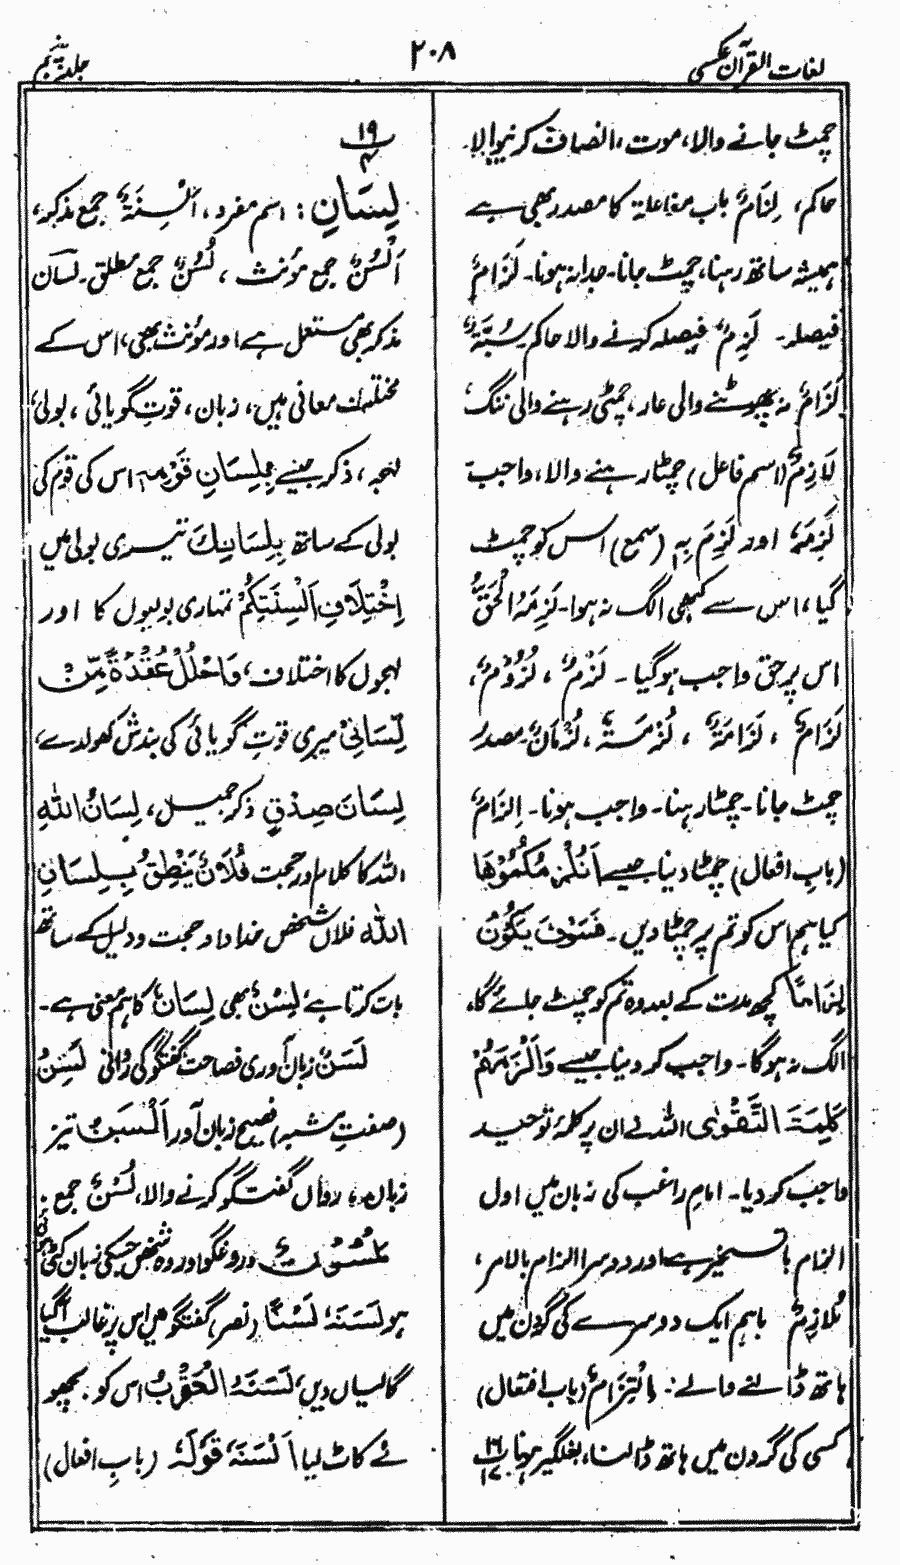 لغات القرآن عکسی
۲۰۸
جلد پنجم
چمٹ جانے والا، موت، انصاف کرنیوالا۔
حاکم، لِزَامٌ باب مفاعلۃ کا مصدر بھی ہے
ہمیشہ ساتھ رہنا، چمٹ جانا۔ جدا نہ ہونا۔ لَزَامٌ
فیصلہ۔ لَزِمٌ فیصلہ کرنے والا حاکم سُبَّۃٌ
لَزَامٌ نہ چھوٹنے والی عار، چمٹی رہنے والی ننگ
لَازِمٌ (اسم فاعل) چمٹا رہنے والا، واجب
لَزِمَہٗ اور لَزِمَ بِہٖ (سمع) اس کو چمٹ
گیا، اس سے کبھی الگ نہ ہوا۔ لَزِمَہُ الْحَقُّ
اس پر حق واجب ہو گیا۔ لَزْمٌ ، لُزُوْمٌ ،
لَزَامٌ ، لَزَامَۃٌ ، لُزْمَۃٌ ، لُزْمَانٌ۔ مصدر
چمٹ جانا۔ چمٹا رہنا۔ واجب ہونا۔ اِلزَامٌ
(باب افعال) چمٹا دینا جیسے اَنُلْزِمُکُمُوْھَا
کیا ہم اس کو تم پر چمٹا دیں۔ فَسَوْفَ یَکُوْنُ
لِزَامًا کچھ مدت کے بعد وہ تم کو چمٹ جائے گا،
الگ نہ ہوگا۔ واجب کر دینا جیسے وَاَلْزَمَھُمْ
کَلِمَۃَ التَّقْوٰی اللہ نے ان پر کلمۂ توحید
واجب کر دیا۔ امام راغب کی زبان میں اول
الزام بالتسخیر ہے اور دوسرا الزام بالامر،
تَلَازُمٌ باہم ایک دوسرے کی گردن میں
ہاتھ ڈالنے والے۔ اِلْتِزَامٌ (باب افتعال)
کسی کی گردن میں ہاتھ ڈالنا، بغلگیر ہونا
۱۹
لِسَانٍ : اسم مفرد ، اَلْسِنَۃٌ جمع مذکر،
اَلْسُنٌ جمع مؤنث ، لُسُنٌ جمع مطلق۔ لسان
مذکر بھی مستعمل ہے اور مؤنث بھی، اس کے
مختلف معانی ہیں، زبان، قوتِ گویائی ، بولی،
لہجہ ، ذکر جیسے بِلِسَانِ قَوْمِہٖ اس کی قوم کی
بولی کے ساتھ بِلِسَانِکَ تیری بولی میں
اِخْتِلَافِ اَلْسِنَتِکُمْ تمہاری بولیوں کا اور
لہجوں کا اختلاف، وَاحْلُلْ عُقْدَۃً مِّنْ
لِّسَانِیْ میری قوتِ گویائی کی بندش کھولدے،
لِسَانَ صِدْقٍ ذکر جمیل، لِسَانُ اللہِ
اللہ کا کلام اور حجت فُلَانٌ یَنْطِقُ بِلِسَانِ
اللہِ فلاں شخص خداداد حجت و دلیل کے ساتھ
بات کرتا ہے لِسْنٌ بھی لِسَانٌ کا ہم معنی ہے۔
لَسَنٌ زبان آوری فصاحت گفتگو کی روانی لَسِنٌ
(صفت مشبہ) فصیح زبان آور اَلْسَنُ تیز
زبان، رواں گفتگو کرنے والا، لُسْنٌ جمع
مَلْسُوْنٌ دروغگو اور وہ شخص جس کی زبان کٹی
ہو لَسَنَہٗ لَسْنًا (نصر) گفتگو میں اس پر غالب آگیا
گالیاں دیں، لَسَنَتْہُ الْعَقْرَبُ اس کو بچھو
نے کاٹ لیا اَلْسَنَہٗ قَوْلَہٗ (باب افعال)